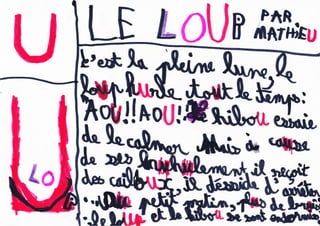 U
LE LOUP
PAR
MATHIEU
C'est la pleine lune, le
loup hurle tout le temps:
"AOU!! AOU!! Le hibou essaie
de le calmer. Mais à cause
de ses il reçoit
des il désside d'arrêter
... petit matin, plus de
LO
P
le loup et le hibou se sont endormis